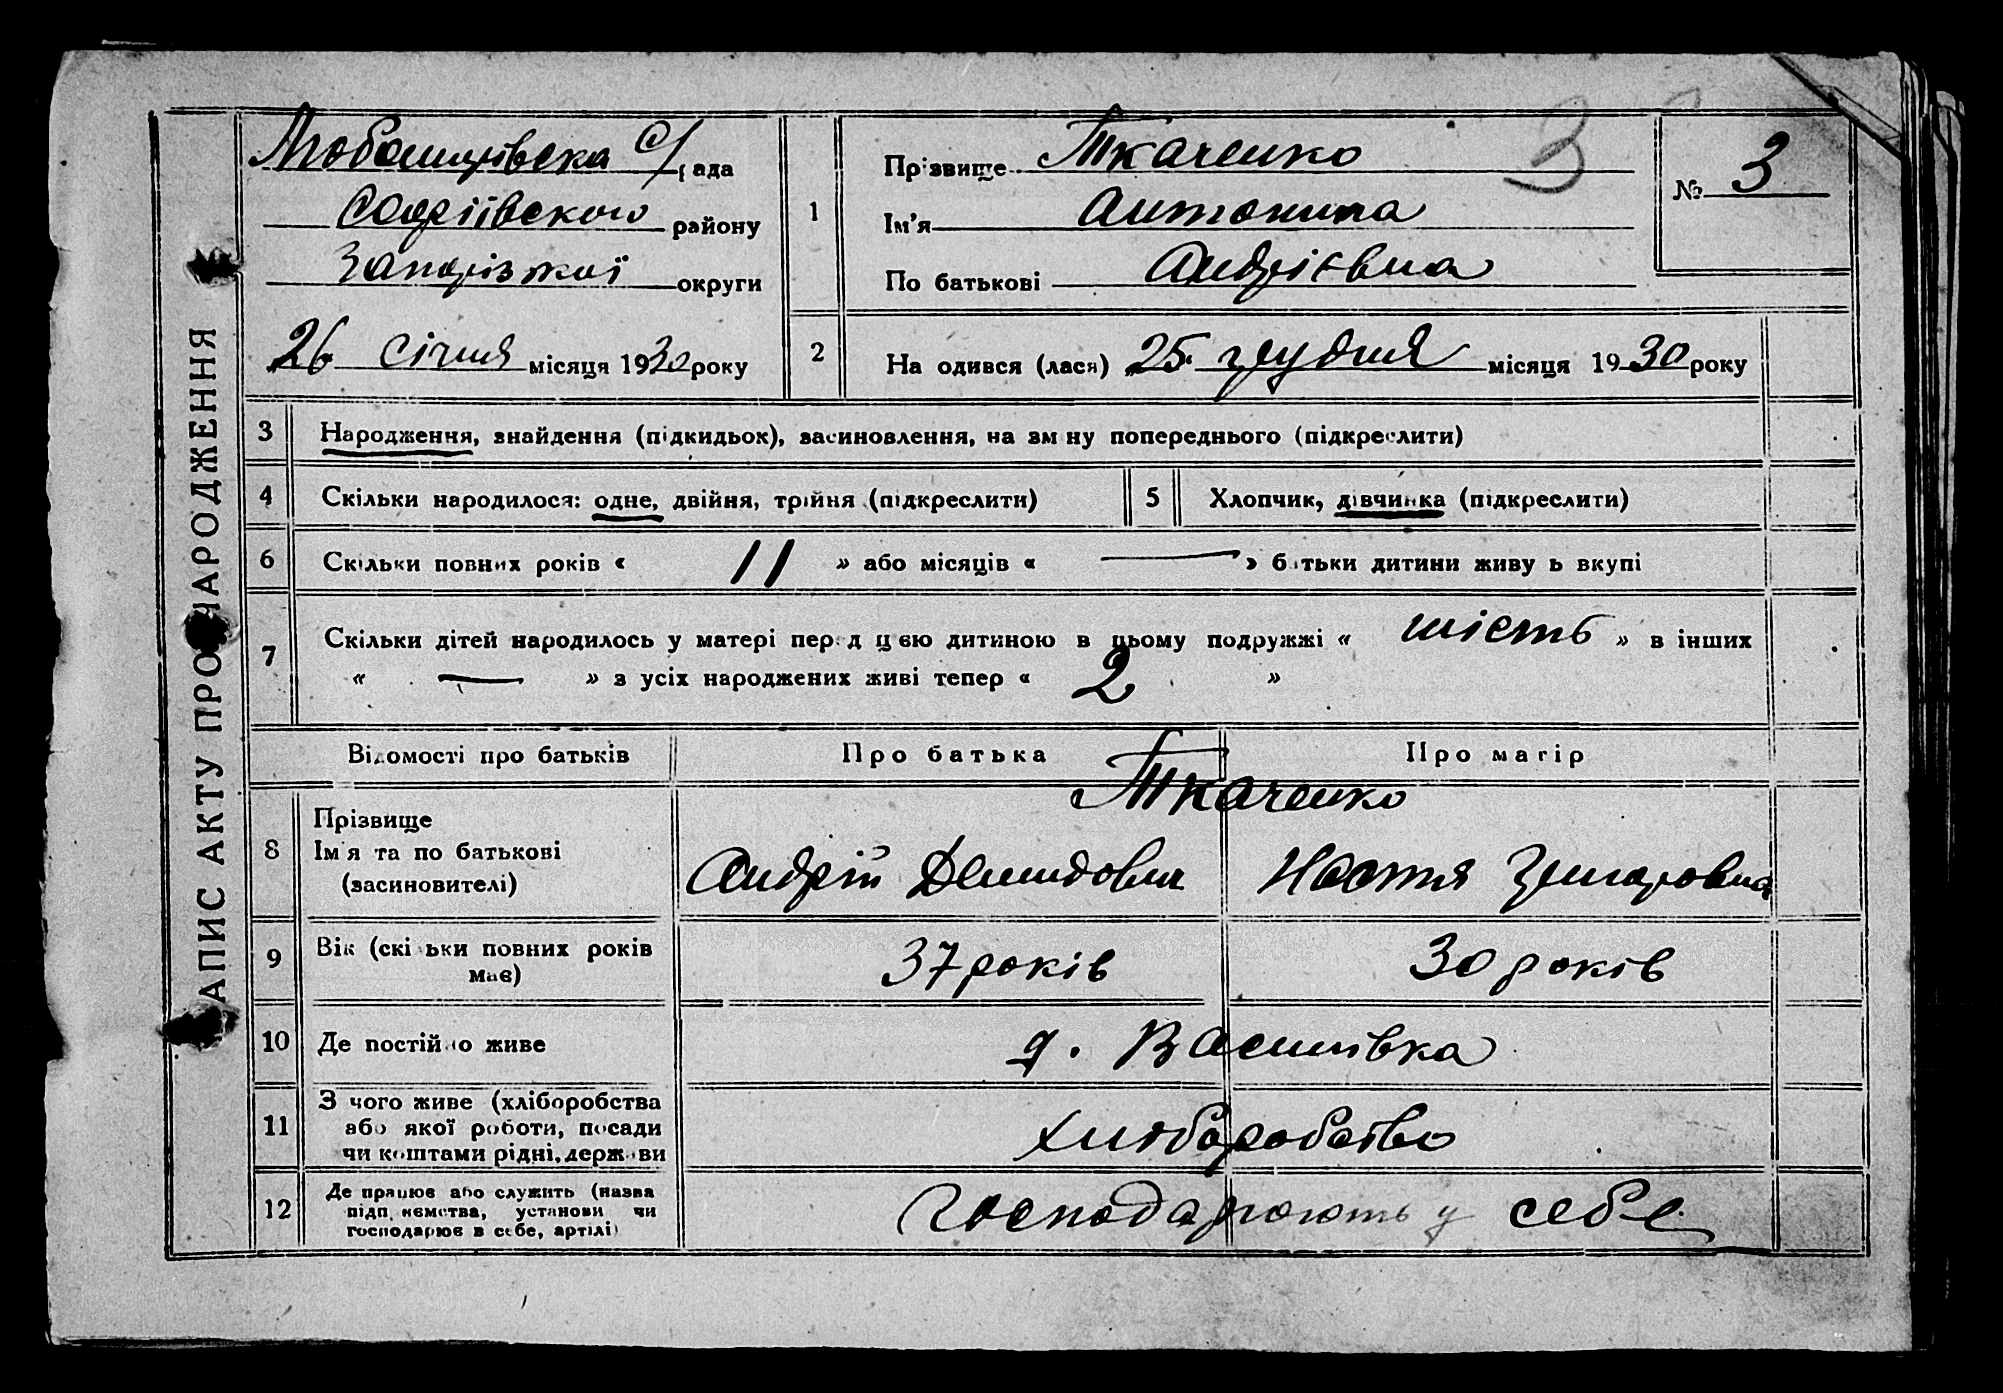 АПИС АКТУ ПРО НАРОДЖЕННЯ
Любашівська С/рада
Софіївского району
Запоріжжої округи
26 січня місяця 1930 року
1
Прізвище Ткаченко
Ім'я Антонина
По батькові Андрієвна
3
№ 3
2
На одився (лася) 25 грудня місяця 1930 року
3 Народження, знайдення (підкидьок), засиновлення, на зм ну попереднього (підкреслити)
4 Скільки народилося: одне, двійня, трійня (підкреслити) 5 Хлопчик, дівчинка (підкреслити)
6 Скільки повних років « 11 » або місяців « — » батьки дитини живу ь вкупі
7 Скільки дітей народилось у матері перед цією дитиною в цьому подружжі « шість » в інших
« — » з усіх народжених живі тепер « 2 »
Відомості про батьків Про батька Про матір
8 Прізвище Ткаченко
Ім'я та по батькові Андрій Демидович Настя Григоровна
(засиновителі)
9 Вік (скі ьки повних років має) 37 років 30 років
10 Де постійно живе Васишівка
11 З чого живе (хліборобства
або якої роботи, посади хлібопобство
чи коштами рідні, держави
12 Де працює або служить (назва
підп ємства, установи чи Господарюють у себе
господарює в себе, артілі)